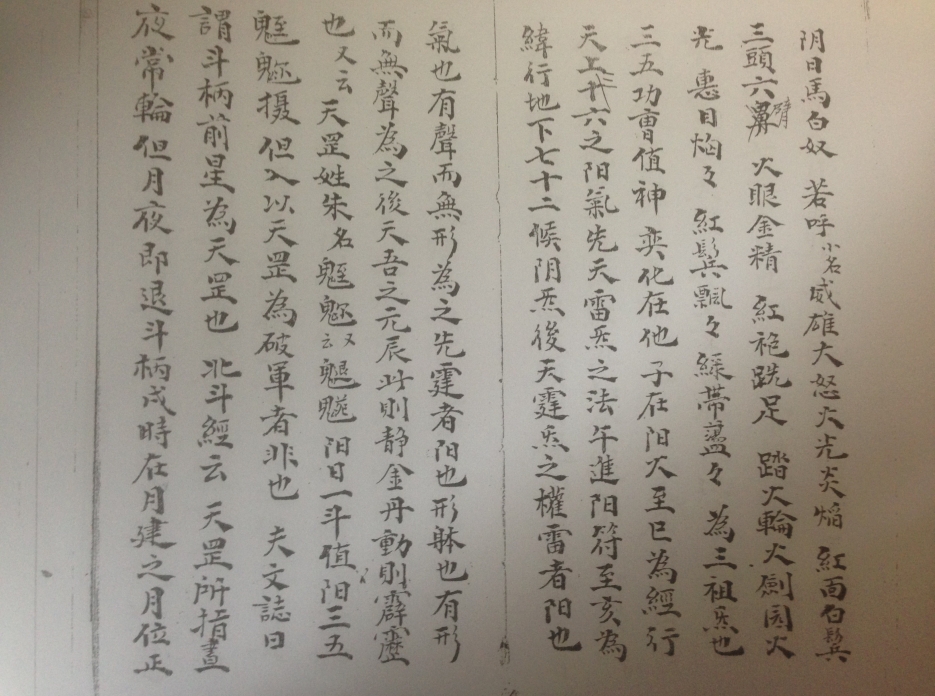 阴日馬白奴 若呼小名威雄大怒火光炎焰 紅面白鬓
三頭六臂 火眼金精 紅袍跣足 踏火輪火劍园火
光 惠目焰々 紅鬓飄々 綵帶盪々 為三祖炁也
三五功曺值神 奕化在他 子在阳火至巳為經行
天上三十六之阳氣先天雷炁之法午進阳符至亥為
緯行地下七十二候阴炁後天霆炁之權雷者阳也
氣也有聲而無形為之先霆者阳也形躰也有形
而無聲為之後天吾之元辰此則静金丹動則霹靂
也又云天罡姓朱名魒又云阳日一斗值阳三五
摄但入以天罡為破軍者非也 夫文誌曰
謂斗柄前星為天罡也 北斗經云 天罡所指晝
夜常輪但月夜即退斗柄戌時在月建之月位正